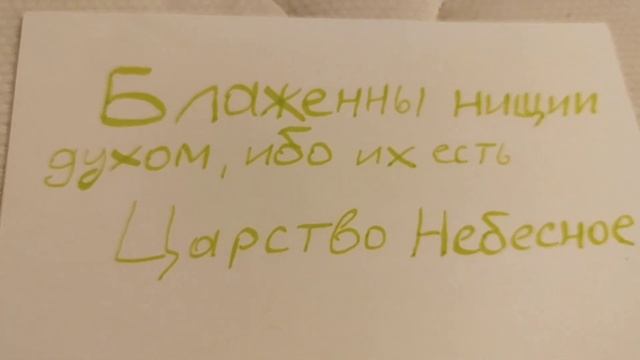 Блаженны нищии
духом, ибо их есть
Царство Небесное